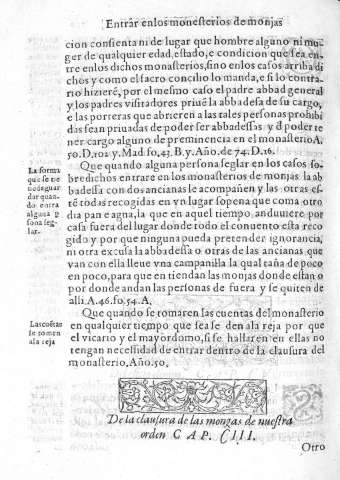 Entrar enlos monesterios de monjas
cion consienta ni de lugar que hombre alguno ni mu
ger de qualquier edad, estado, e condicion que sea en-
tre enlos dichos monesterios, sino enlos casos arriba di
chos y como el sacro concilio lo manda, e si lo contra-
rio hizierẽ, por el mesmo caso el padre abbad general
y los padres visitadores priuẽ la abbadesa de su cargo,
e las porteras que abrieren a las tales personas prohibi
das sean priuadas de poder ser abbadessas y d̃ poder te
ner cargo alguno de preminencia en el monasterio A.
50. D. 102. y. Mad. fo. 43. B. y. Año. de 74. D. 16.
Que quando alguna persona seglar en los casos so-
bredichos entrare en los monasterios de monjas la ab
badessa con dos ancianas le acompañen y las otras es-
tẽ todas recogidas en vn lugar sopena que coma otro
dia pan e agua, la que en aquel tiempo, anduuiere por
casa fuera del lugar donde todo el conuento esta reco
gido y por que ninguna pueda pretender ignorancia,
ni otra excusa la abbadessa o otras de las ancianas que
van con ella lleue vna campanilla la qual taña de poco
en poco, para que en tiendan las monjas donde estan o
por donde andan las personas de fuera y se quiten de
alli. A. 46. fo. 54. A.
La forma
que se ne
de aguar
dar quan-
do entra
alguna p̃
sona seg-
lar.
Que quando se tomaren las cuentas del monasterio
en qualquier tiempo que sea se den ala reja por que
el vicario y el mayordomo, si se hallaren en ellas no
tengan necessidad de entrar dentro de la clausura del
monasterio, Año. 50.
Las cuẽtas
se tomen
ala reja
De la clausura de las mongas de nuestra
orden CAP. CIII.
Otro